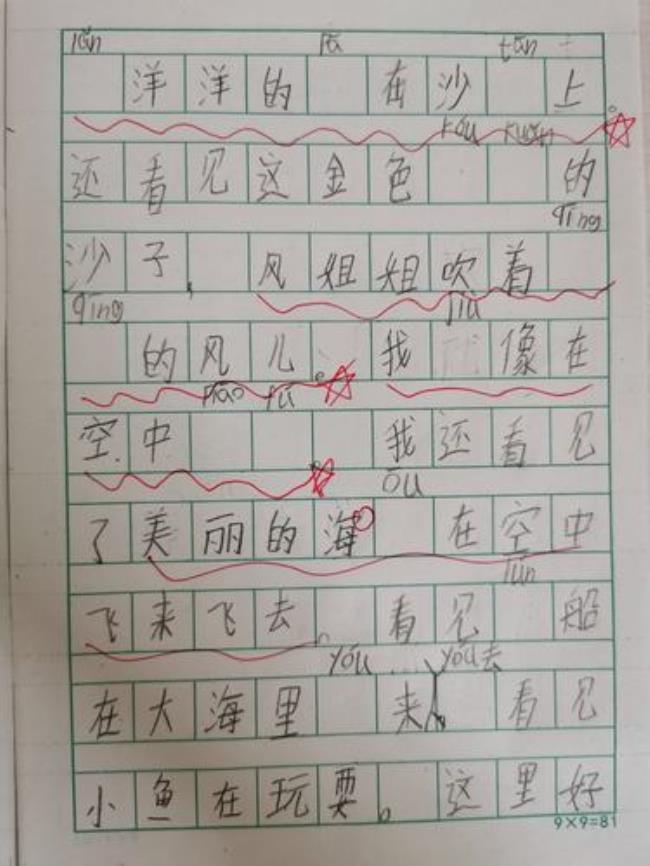 lǎn pā tān
洋洋的 在沙 上。
kōu kuān
还看见这金色 的
qīng
沙子，风姐姐吹着
qīng jiù
的风儿。我 像在
piāo fú
空中 我还看见
ōu
了美丽的海 在空中
lún
飞来飞去。看见 船
yóu yóu去
在大海里 来 看见
小鱼在玩耍。这里好
9×9=81